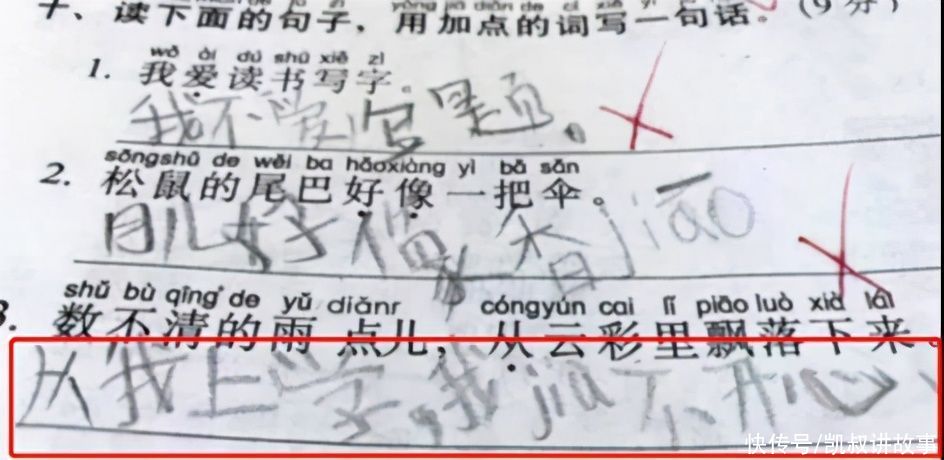 十、读下面的句子，用加点的词写一句话。（9分）
wǒ ài dú shū xiě zì
1. 我爱读书写字。
我不爱写题。
sōngshǔ de wěi ba hǎoxiàng yì bǎ sǎn
2. 松鼠的尾巴好像一把伞。
月儿好像 香jiāo
shǔ bù qīng de yǔ diǎnr cóngyún cai lǐ piāo luò xià lái
3. 数不清的雨点儿，从云彩里飘落下来。
从我上学，我jiù不开心
快传号/凯叔讲故事